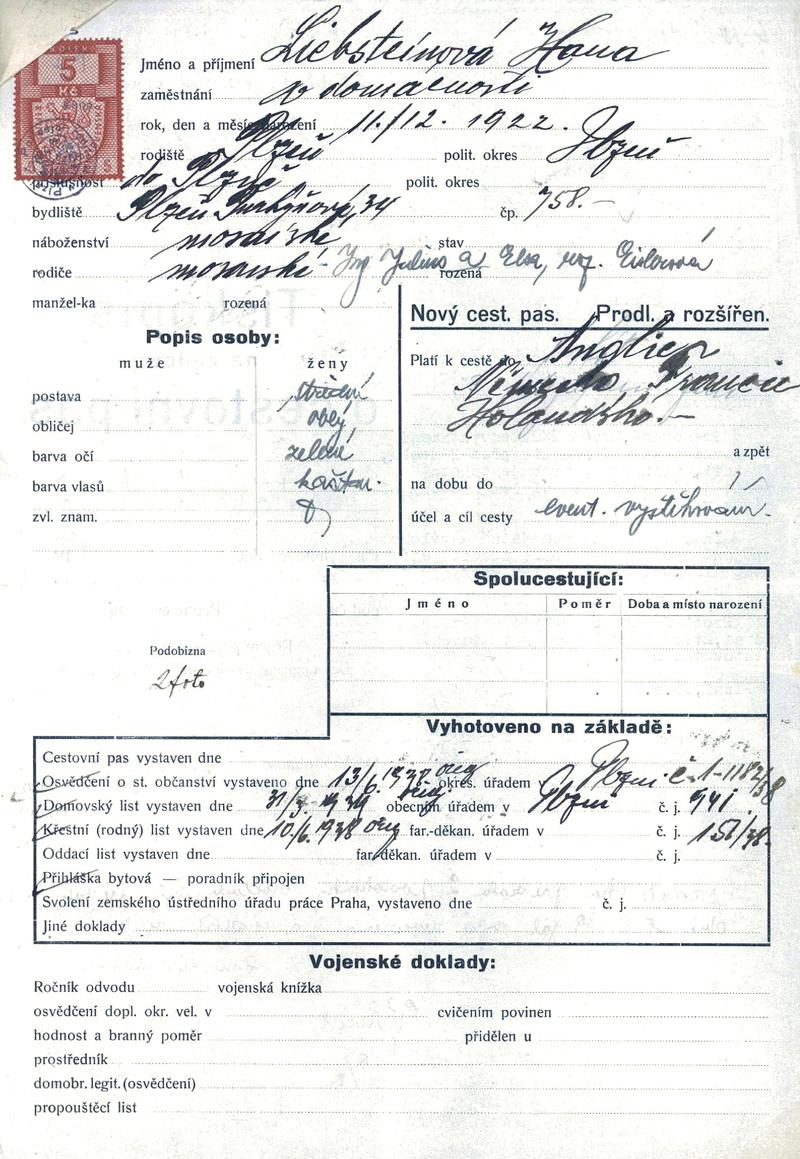 KOLEK
5
Kč
Jméno a příjmení Liebsteinová Hana
zaměstnání v domácnosti
rok, den a měsíc narození 11./12. 1922.
rodiště Plzeň polit. okres Plzeň
příslušnost do Plzně polit. okres
bydliště Plzeň 34 čp. 758.–
náboženství mosaiské stav
rodiče mosaiské Ing Julius a Elsa, roz. Eislerová rozená
manžel-ka rozená
Nový cest. pas. Prodl. a rozšířen.
Popis osoby:
muže ženy
Platí k cestě do Anglie,
Německo Francie
Holandsko.–
postava střední
obličej oválý
barva očí zelené
a zpět
barva vlasů kaštan.
na dobu do
zvl. znam.
účel a cíl cesty event. vystěhování.
Spolucestující:
Jméno Poměr Doba a místo narození
Podobizna
2 foto
Vyhotoveno na základě:
Cestovní pas vystaven dne
Osvědčení o st. občanství vystaveno dne 13/6. 1938 orig okres. úřadem v Plzni č 1-1182/38
Domovský list vystaven dne 31/3. 1939 orig obecným úřadem v Plzni č. j. 941.
Křestní (rodný) list vystaven dne 10/6. 1938 orig far.-děkan. úřadem v č. j. 151/38.
Oddací list vystaven dne far.-děkan. úřadem v č. j.
Přihláška bytová — poradník připojen
Svolení zemského ústředního úřadu práce Praha, vystaveno dne č. j.
Jiné doklady
Vojenské doklady:
Ročník odvodu vojenská knížka
osvědčení dopl. okr. vel. v cvičením povinen
hodnost a branný poměr přidělen u
prostředník
domobr. legit. (osvědčení)
propouštěcí list